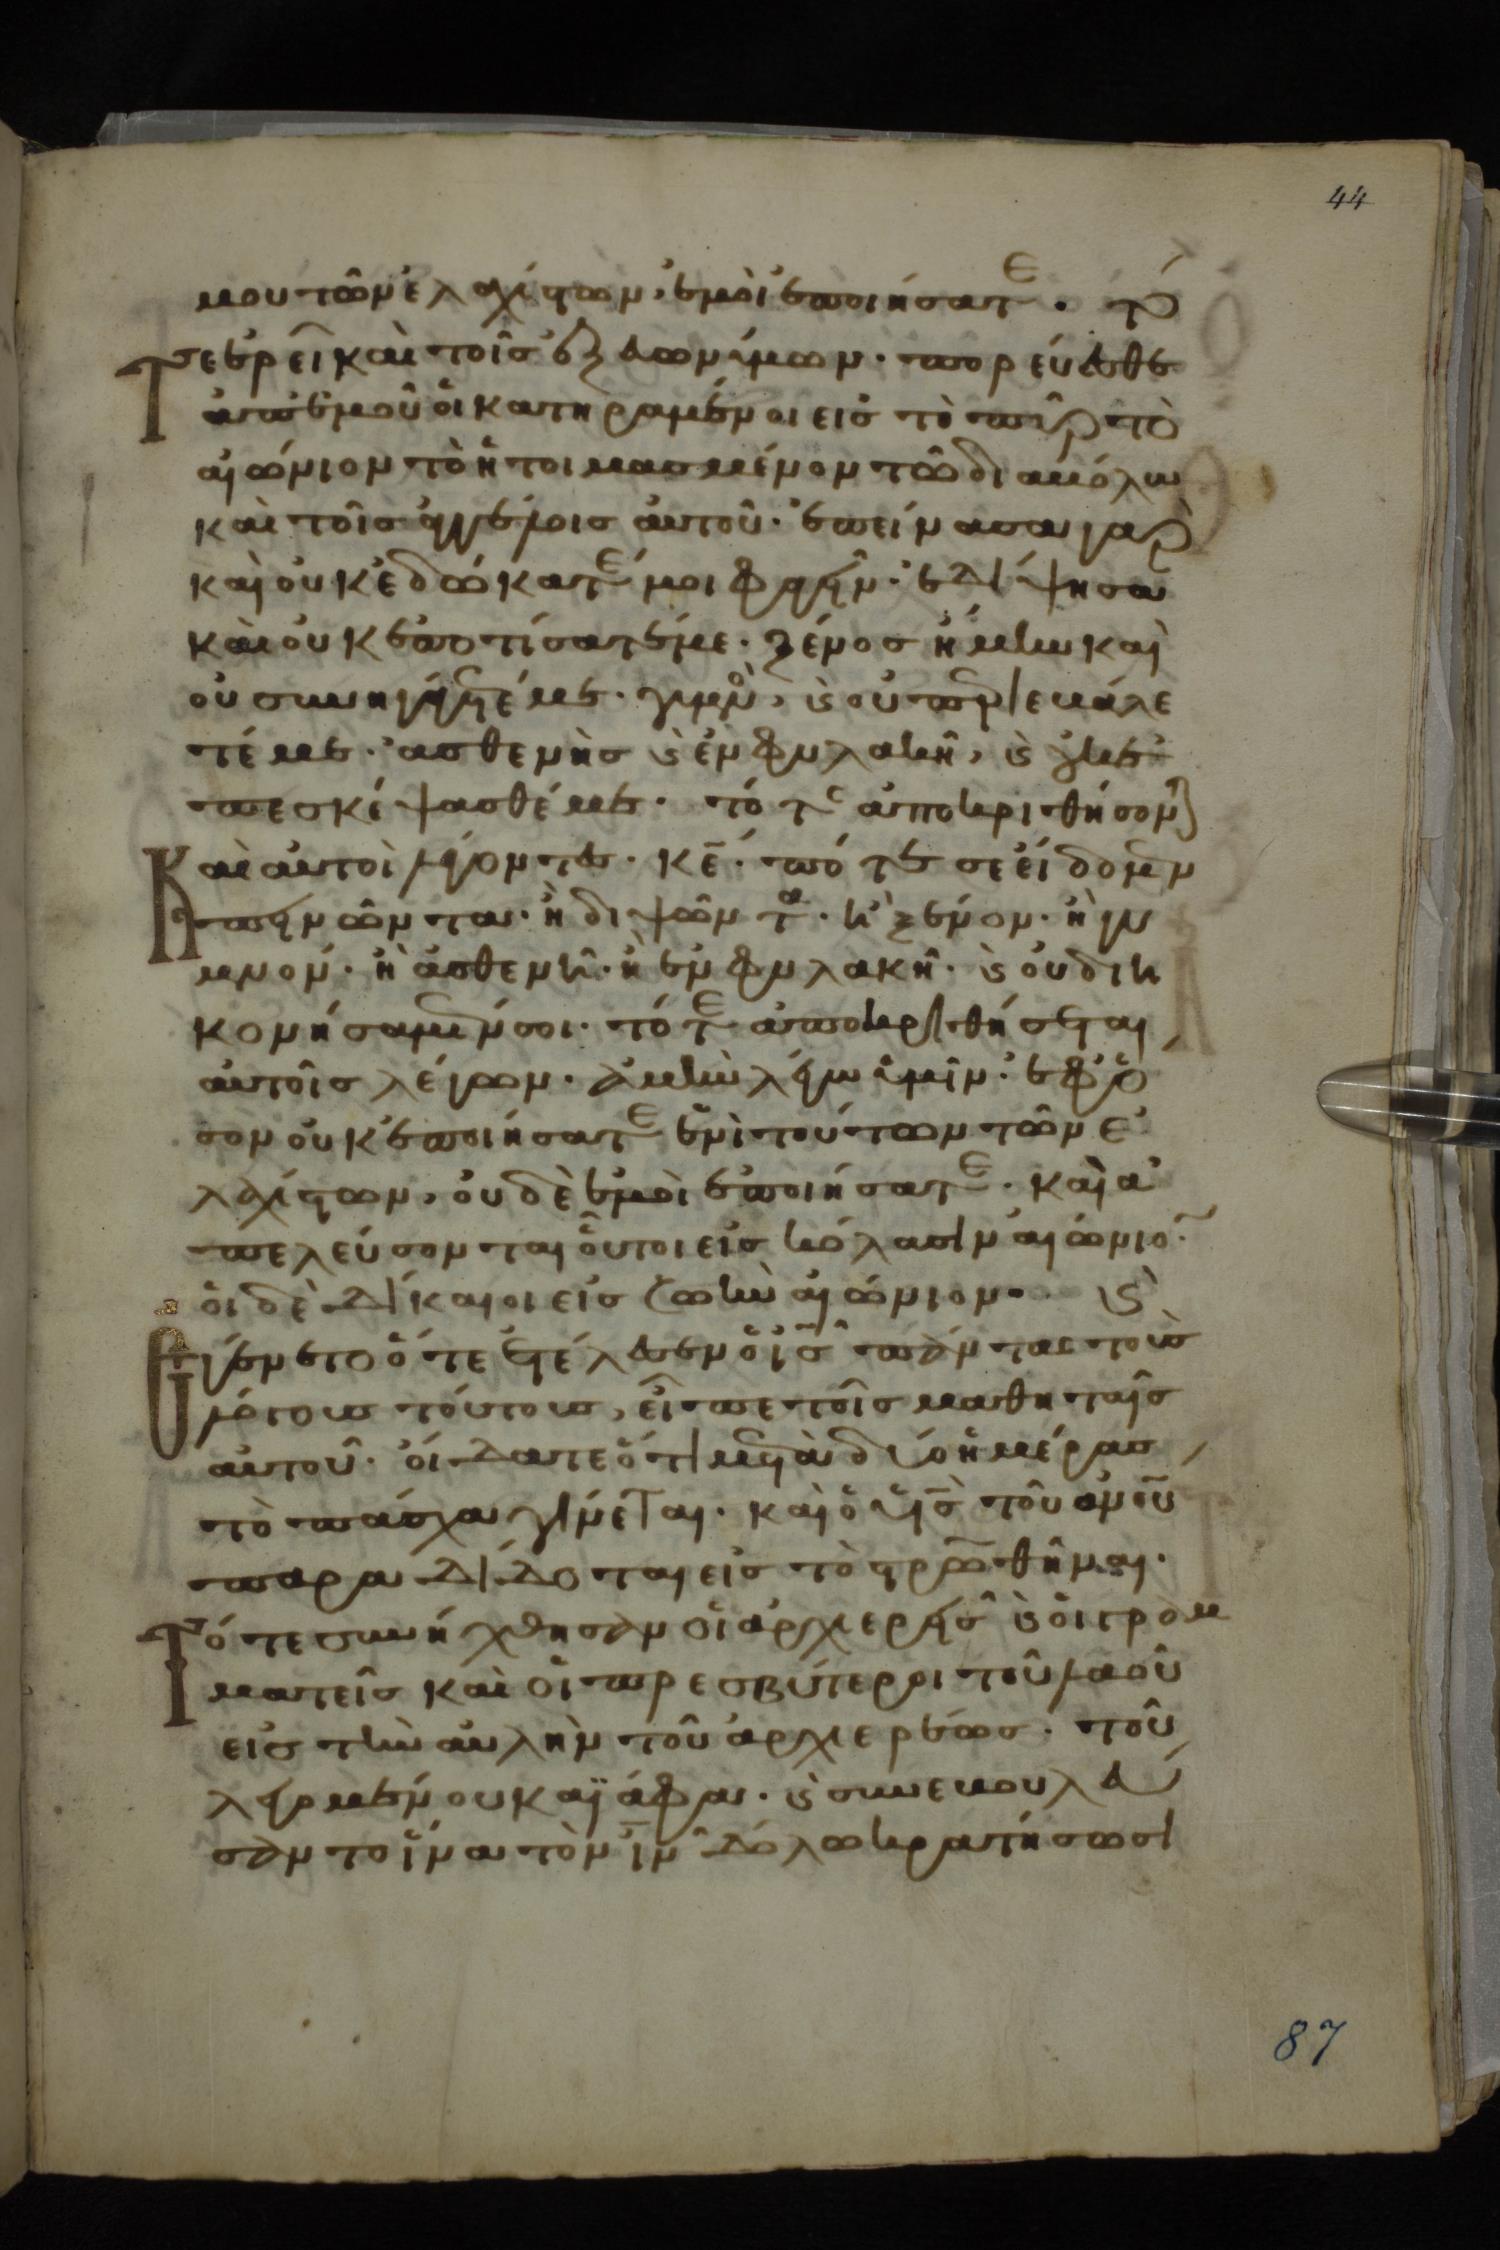 44
μου τῶν ἐλαχίστων, ἐμοὶ ἐποιήσατε. τό
Τε ἐρεῖ καὶ τοῖς ἐξ εὐωνύμων. πορεύεσθε
ἀπ' ἐμοῦ οἱ κατηραμένοι εἰς τὸ πῦρ τὸ
αἰώνιον τὸ ἡτοιμασμένον τῶ διαβόλω
καὶ τοῖς ἀγγέλοις αὐτοῦ. ἐπείνασα γὰρ
καὶ οὐκ ἐδώκατέ μοι φαγεῖν. ἐδίψησα
καὶ οὐκ ἐποτίσατέ με. ξένος ἤμην καὶ
οὐ συνηγάγετέ με. γυμνὸς, καὶ οὐ περιεβάλε
τέ με. ἀσθενὴς καὶ ἐν φυλακῆ, καὶ οὐκ ἐ
πεσκέψασθέ με. τότε ἀποκριθήσονται
Καὶ αὐτοὶ λέγοντες. κε̄. πότε σε εἴδομεν
πεινῶντα. ἢ διψῶντα. ἢ ξένον. ἢ γυ
μνόν. ἢ ἀσθενῆ. ἢ ἐν φυλακῆ. καὶ οὐ διη
κονήσαμέν σοι. τότε ἀποκριθήσεται
αὐτοῖς λέγων. ἀμὴν λέγω ὑμῖν. ἐφ' ὅ
σον οὐκ ἐποιήσατε ἑνὶ τούτων τῶν ἐ
λαχίστων, οὐδὲ ἐμοὶ ἐποιήσατε. καὶ ἀ
πελεύσονται οὗτοι εἰς κόλασιν αἰώνιον.
οἱ δὲ δίκαιοι εἰς ζωὴν αἰώνιον. καὶ
Ἐγένετο ὅτε ἐτέλεσεν ὁ ις̄ πάντας τοὺς
λόγους τούτους, εἶπε τοῖς μαθηταῖς
αὐτοῦ. οἴδατε ὅτι μετὰ δύο ἡμέρας
τὸ πάσχα γίνεται. καὶ ὁ υἱς̄ τοῦ ανοῡ
παραδίδοται εἰς τὸ στρω̄θῆναι.
Τότε συνήχθησαν οἱ ἀρχιερεῖς καὶ οἱ γραμ
ματεῖς καὶ οἱ πρεσβύτεροι τοῦ λαοῦ
εἰς τὴν αὐλὴν τοῦ ἀρχιερέως. τοῦ
λεγομένου καϊάφα. καὶ συνεβουλεύ
σαντο ἵνα τὸν ιν̄ δόλω κρατήσωσι
87